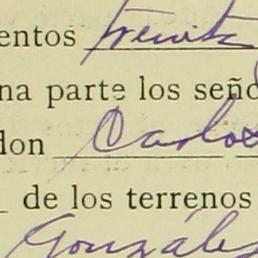 entos treinta
na parte los seño
don Carlos
de los terrenos
González